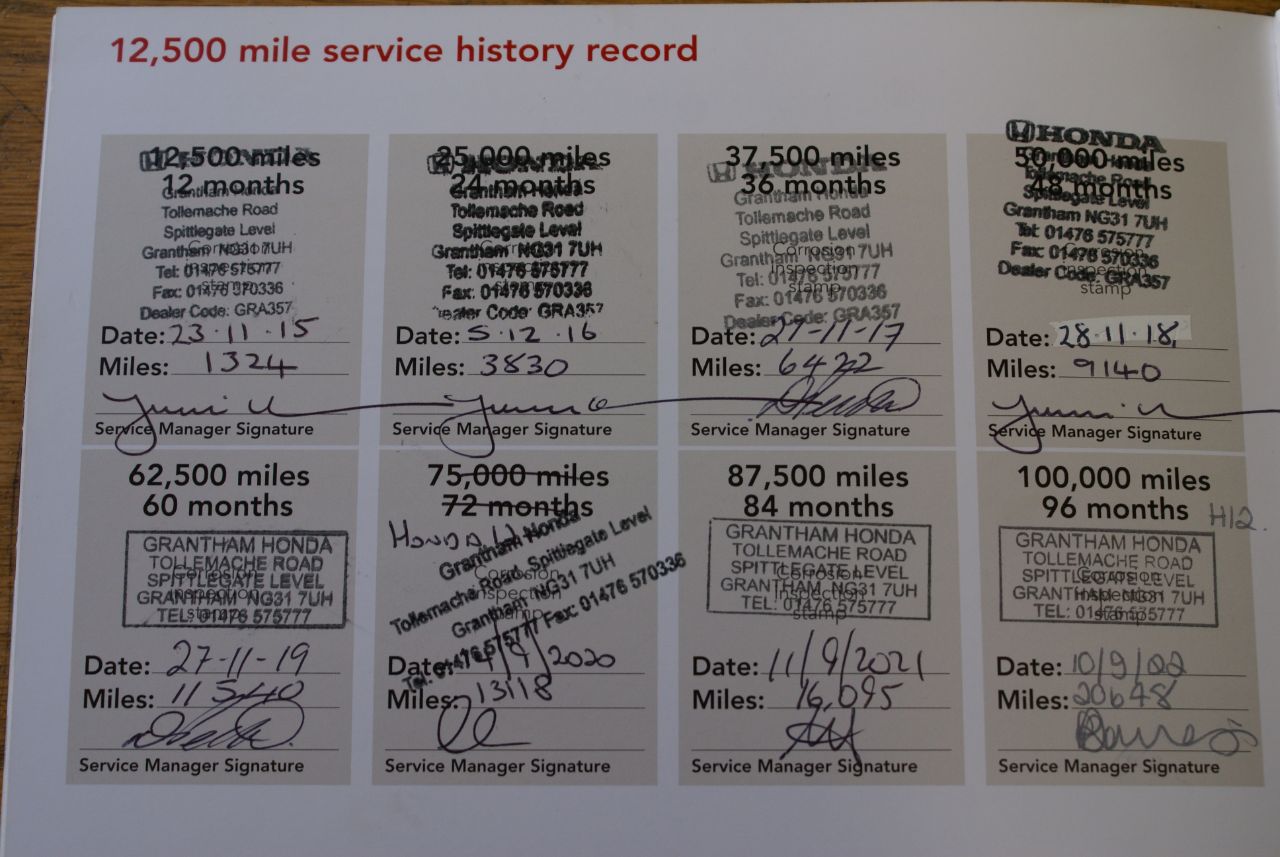 12,500 mile service history record
HONDA
12,500 miles
12 months
Grantham Honda
Tollemache Road
Spittlegate Level
Grantham NG31 7UH
Tel: 01476 575777
Fax: 01476 570336
Dealer Code: GRA357
Corrosion
Inspection
stamp
Date: 23·11·15
Miles: 1324
Service Manager Signature
HONDA
25,000 miles
24 months
Grantham Honda
Tollemache Road
Spittlegate Level
Grantham NG31 7UH
Tel: 01476 575777
Fax: 01476 570336
Dealer Code: GRA357
Corrosion
Inspection
stamp
Date: 5·12·16
Miles: 3830
Service Manager Signature
HONDA
37,500 miles
36 months
Grantham Honda
Tollemache Road
Spittlegate Level
Grantham NG31 7UH
Tel: 01476 575777
Fax: 01476 570336
Dealer Code: GRA357
Corrosion
Inspection
stamp
Date: 27-11-17
Miles: 6422
Service Manager Signature
HONDA
50,000 miles
48 months
Grantham Honda
Tollemache Road
Spittlegate Level
Grantham NG31 7UH
Tel: 01476 575777
Fax: 01476 570336
Dealer Code: GRA357
Corrosion
Inspection
stamp
Date: 28·11·18
Miles: 9140
Service Manager Signature
62,500 miles
60 months
GRANTHAM HONDA
TOLLEMACHE ROAD
SPITTLEGATE LEVEL
GRANTHAM NG31 7UH
TEL: 01476 575777
Corrosion
Inspection
stamp
Date: 27-11-19
Miles: 11540
Service Manager Signature
75,000 miles
72 months
HONDA
Grantham Honda
Tollemache Road, Spittlegate Level
Grantham NG31 7UH
Tel: 01476 575777 Fax: 01476 570336
Corrosion
Inspection
stamp
Date: /9/2020
Miles: 13118
Service Manager Signature
87,500 miles
84 months
GRANTHAM HONDA
TOLLEMACHE ROAD
SPITTLEGATE LEVEL
GRANTHAM NG31 7UH
TEL: 01476 575777
Corrosion
Inspection
stamp
Date: 11/9/2021
Miles: 16,095
Service Manager Signature
100,000 miles
96 months H12.
GRANTHAM HONDA
TOLLEMACHE ROAD
SPITTLEGATE LEVEL
GRANTHAM NG31 7UH
TEL: 01476 575777
Corrosion
Inspection
stamp
Date: 10/9/22
Miles: 20648
Service Manager Signature